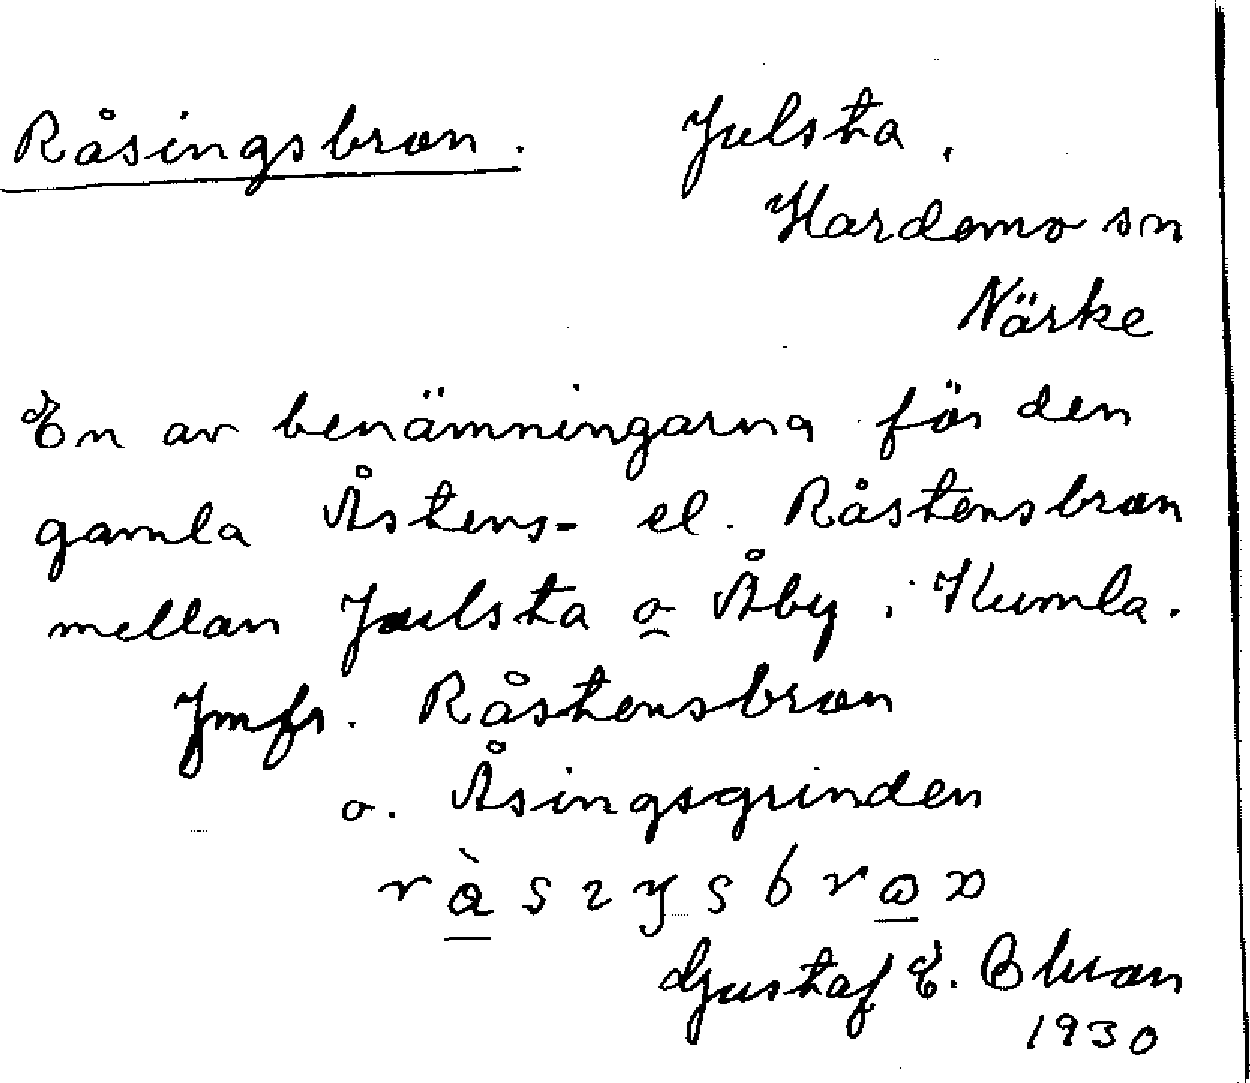 Råsingsbron. Julsta,
Hardemo sn
Närke
En av benämningarna för den
gamla Åstens- el. Råstensbron
mellan Julsta o Åby i Kumla.
Jmfr. Råstensbron
o. Åsingsgrinden
Gustaf E. Bluan
1930